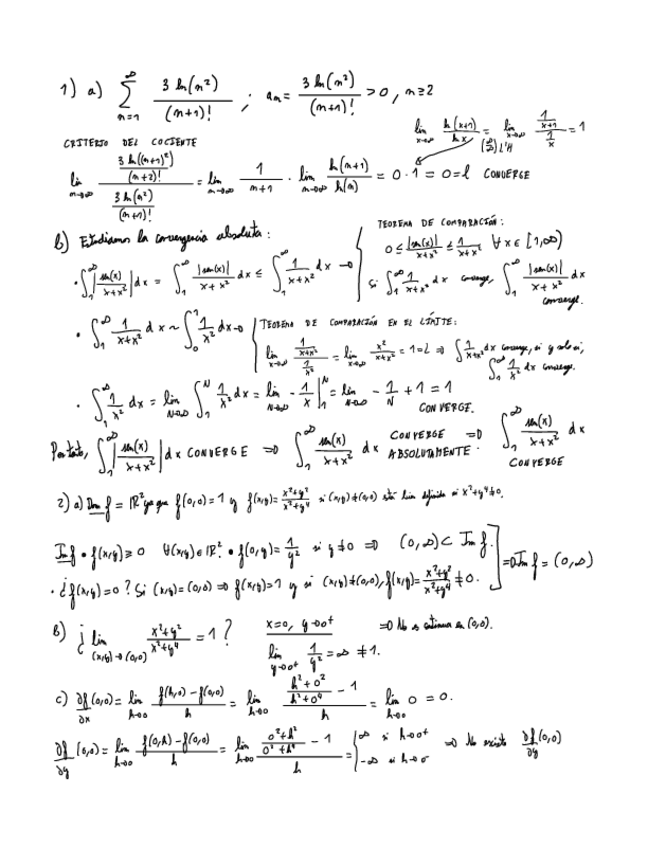 1) a) ∑_{n=1}^{∞} 3 ln(n²)/(n+1)! ; a_n = 3 ln(n²)/(n+1)! > 0, n≥2
lim_{x→∞} ln(x+1)/ln x = [∞/∞] L'H lim_{x→∞} (1/(x+1))/(1/x) = 1
CRITERIO DEL COCIENTE
lim_{n→∞} (3 ln((n+1)²)/(n+2)!)/(3 ln(n²)/(n+1)!) = lim_{n→∞} 1/(n+1) · lim_{n→∞} ln(n+1)/ln(n) = 0·1 = 0 = l CONVERGE
b) Estudiamos la convergencia absoluta:
· ∫_1^∞ |sen(x)/(x+x²)| dx = ∫_1^∞ |sen(x)|/(x+x²) dx ≤ ∫_1^∞ 1/(x+x²) dx →
TEOREMA DE COMPARACIÓN:
0 ≤ |sen(x)|/(x+x²) ≤ 1/(x+x²) ∀x∈[1,∞)
Si ∫_1^∞ 1/(x+x²) dx converge, ∫_1^∞ |sen(x)|/(x+x²) dx converge.
· ∫_1^∞ 1/(x+x²) dx ~ ∫_0^∞ 1/x² dx →
TEOREMA DE COMPARACIÓN EN EL LÍMITE:
lim_{x→∞} (1/(x+x²))/(1/x²) = lim_{x→∞} x²/(x+x²) = 1 = L ⇒ ∫_1^∞ 1/(x+x²) dx converge, si y solo si,
∫_1^∞ 1/x² dx converge.
· ∫_1^∞ 1/x² dx = lim_{N→∞} ∫_1^N 1/x² dx = lim_{N→∞} -1/x |_1^N = lim_{N→∞} -1/N + 1 = 1
CONVERGE.
Por tanto, ∫_1^∞ |sen(x)/(x+x²)| dx CONVERGE ⇒ ∫_1^∞ sen(x)/(x+x²) dx CONVERGE ABSOLUTAMENTE ⇒ ∫_1^∞ sen(x)/(x+x²) dx
CONVERGE
2) a) Dom f = ℝ² ya que f(0,0)=1 y f(x,y)= (x²+y²)/(x²+y⁴) si (x,y)≠(0,0) está bien definida si x²+y⁴≠0.
Im f · f(x,y)≥0 ∀(x,y)∈ℝ². · f(0,y)= 1/y² si y≠0 ⇒ (0,∞)⊂ Im f.
· ¿f(x,y)=0? Si (x,y)=(0,0) ⇒ f(x,y)=1 y si (x,y)≠(0,0), f(x,y)= (x²+y²)/(x²+y⁴) ≠0. ] ⇒ Im f = (0,∞)
b) ¿ lim_{(x,y)→(0,0)} (x²+y²)/(x²+y⁴) = 1 ? x=0, y→0⁺ ⇒ No es continua en (0,0).
lim_{y→0⁺} 1/y² = ∞ ≠ 1.
c) ∂f/∂x (0,0) = lim_{h→0} (f(h,0)-f(0,0))/h = lim_{h→0} ((h²+0²)/(h²+0⁴) - 1)/h = lim_{h→0} 0 = 0.
∂f/∂y (0,0) = lim_{h→0} (f(0,h)-f(0,0))/h = lim_{h→0} ((0²+h²)/(0²+h⁴) - 1)/h = { ∞ si h→0⁺ -∞ si h→0⁻ ⇒ No existe ∂f/∂y (0,0)